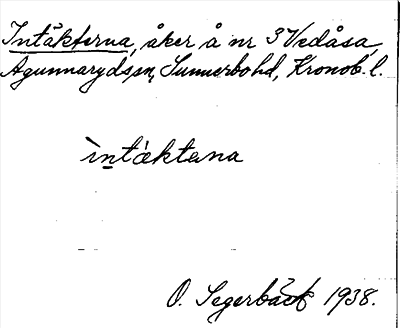 Intäkterna, åker å nr 3 Vedåsa,
Agunnaryds sn, Sunnerbo hd, Kronob. l.
ìntáktana
O. Segerbäck 1938.